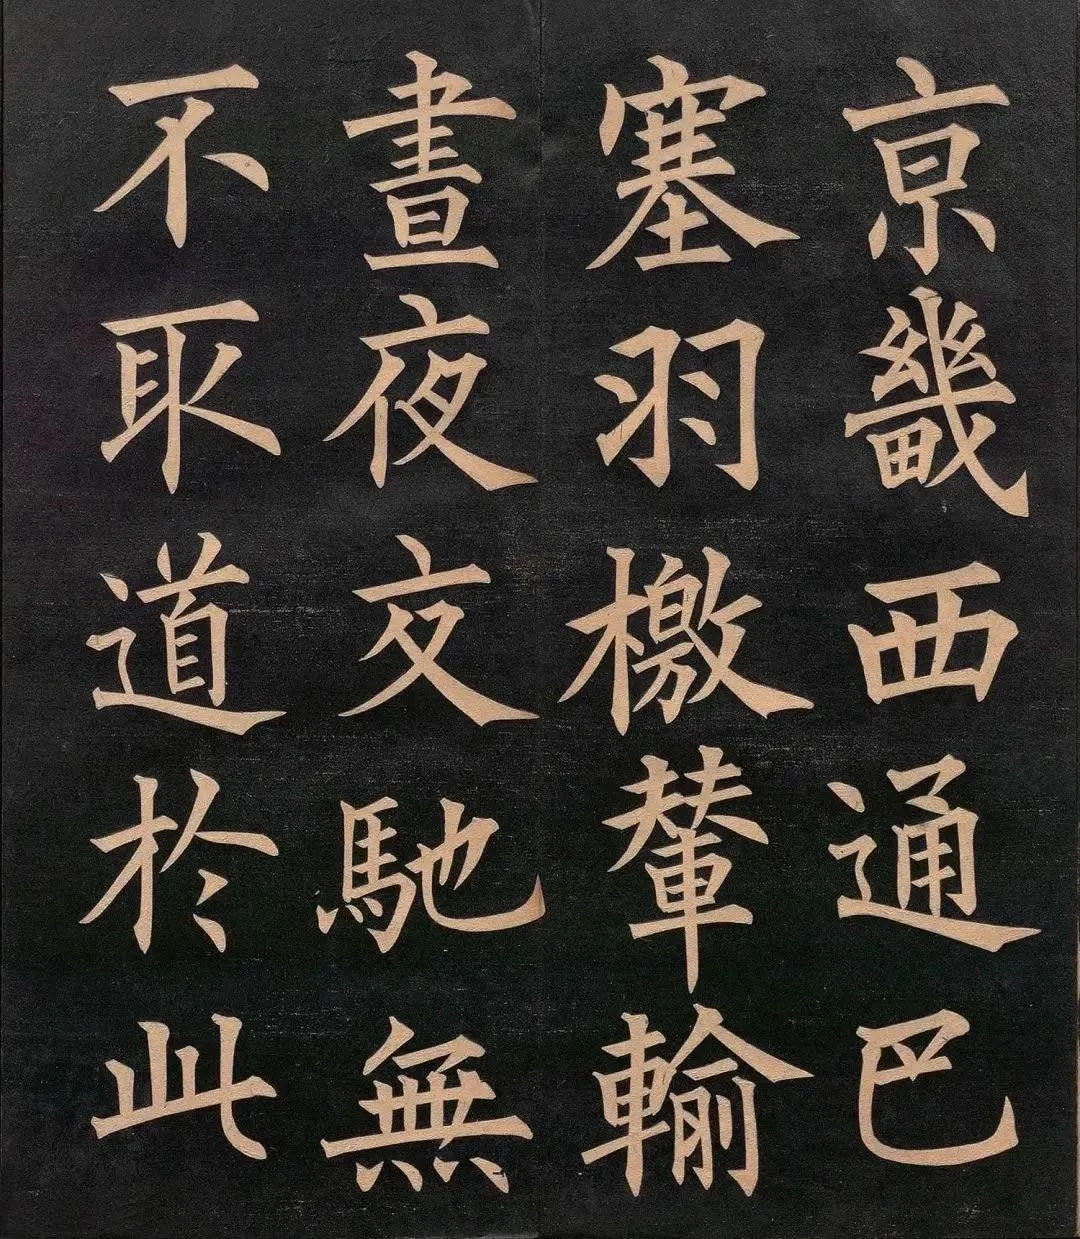 亰畿西通巴
塞羽檄輦輸
晝夜交馳無
不取道於此